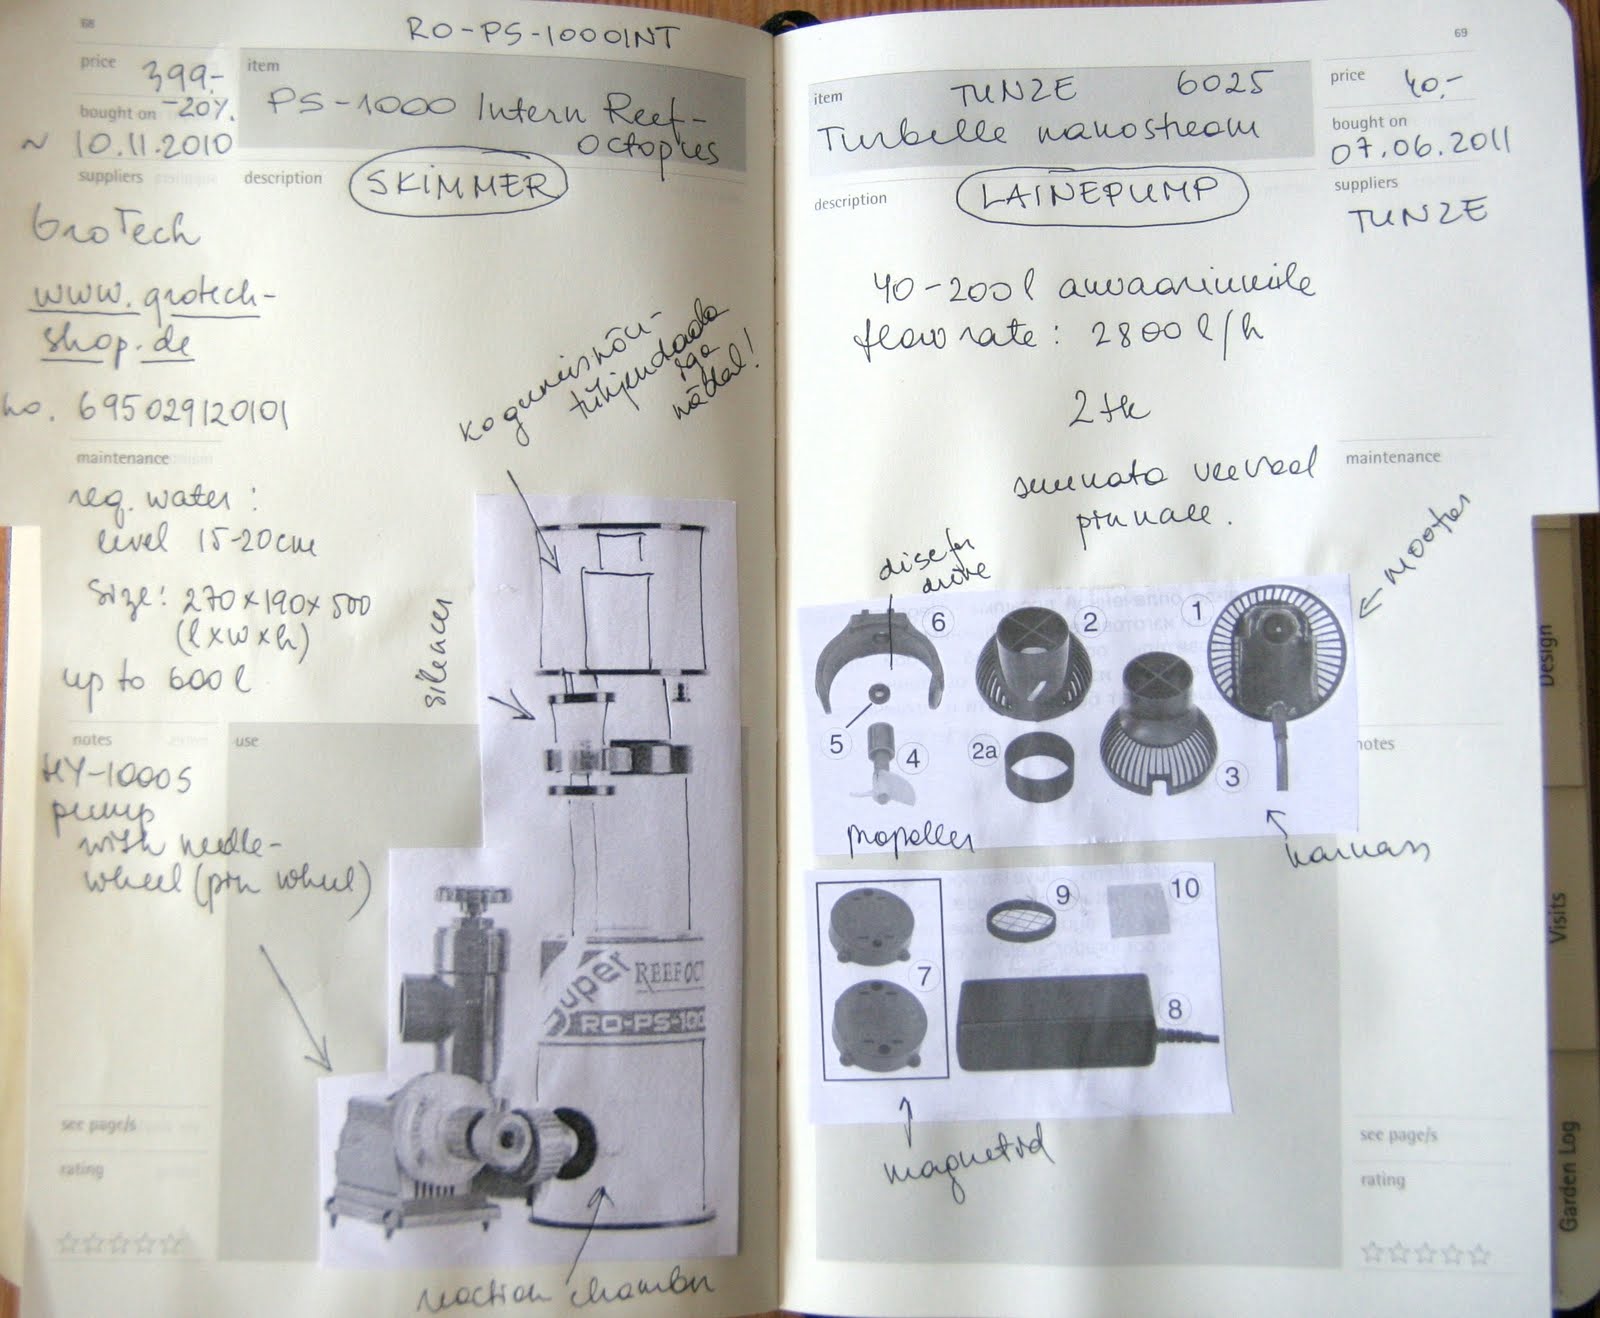 68
RO-PS-1000INT
price
399.-
-20%.
item
PS-1000 Intern Reef-
octopus
bought on
~ 10.11.2010
suppliers
description
SKIMMER
GroTech
www.grotech-
shop.de
no. 695029120101
maintenance
req. water:
level 15-20cm
size: 270x190x500
(l x w x h)
up to 600 l
notes
use
HY-1000S
pump
with needle-
wheel (pin wheel)
see page/s
rating
kogumisnõu-
tühjendada
iga
nädal!
silencer
Super
REEF OCT
RO-PS-100
reaction chamber
69
item
TUNZE 6025
Turbelle nanostream
price
40.-
bought on
07.06.2011
suppliers
TUNZE
description
LAINEPUMP
40-200l akvaariumile
flow rate: 2800 l/h
2tk
suunata veevool
pinnale.
maintenance
disc for
drive
mootor
6
2
1
5
4
2a
3
propeller
7
9
10
8
magnetid
notes
see page/s
rating
Design
Visits
Garden Log